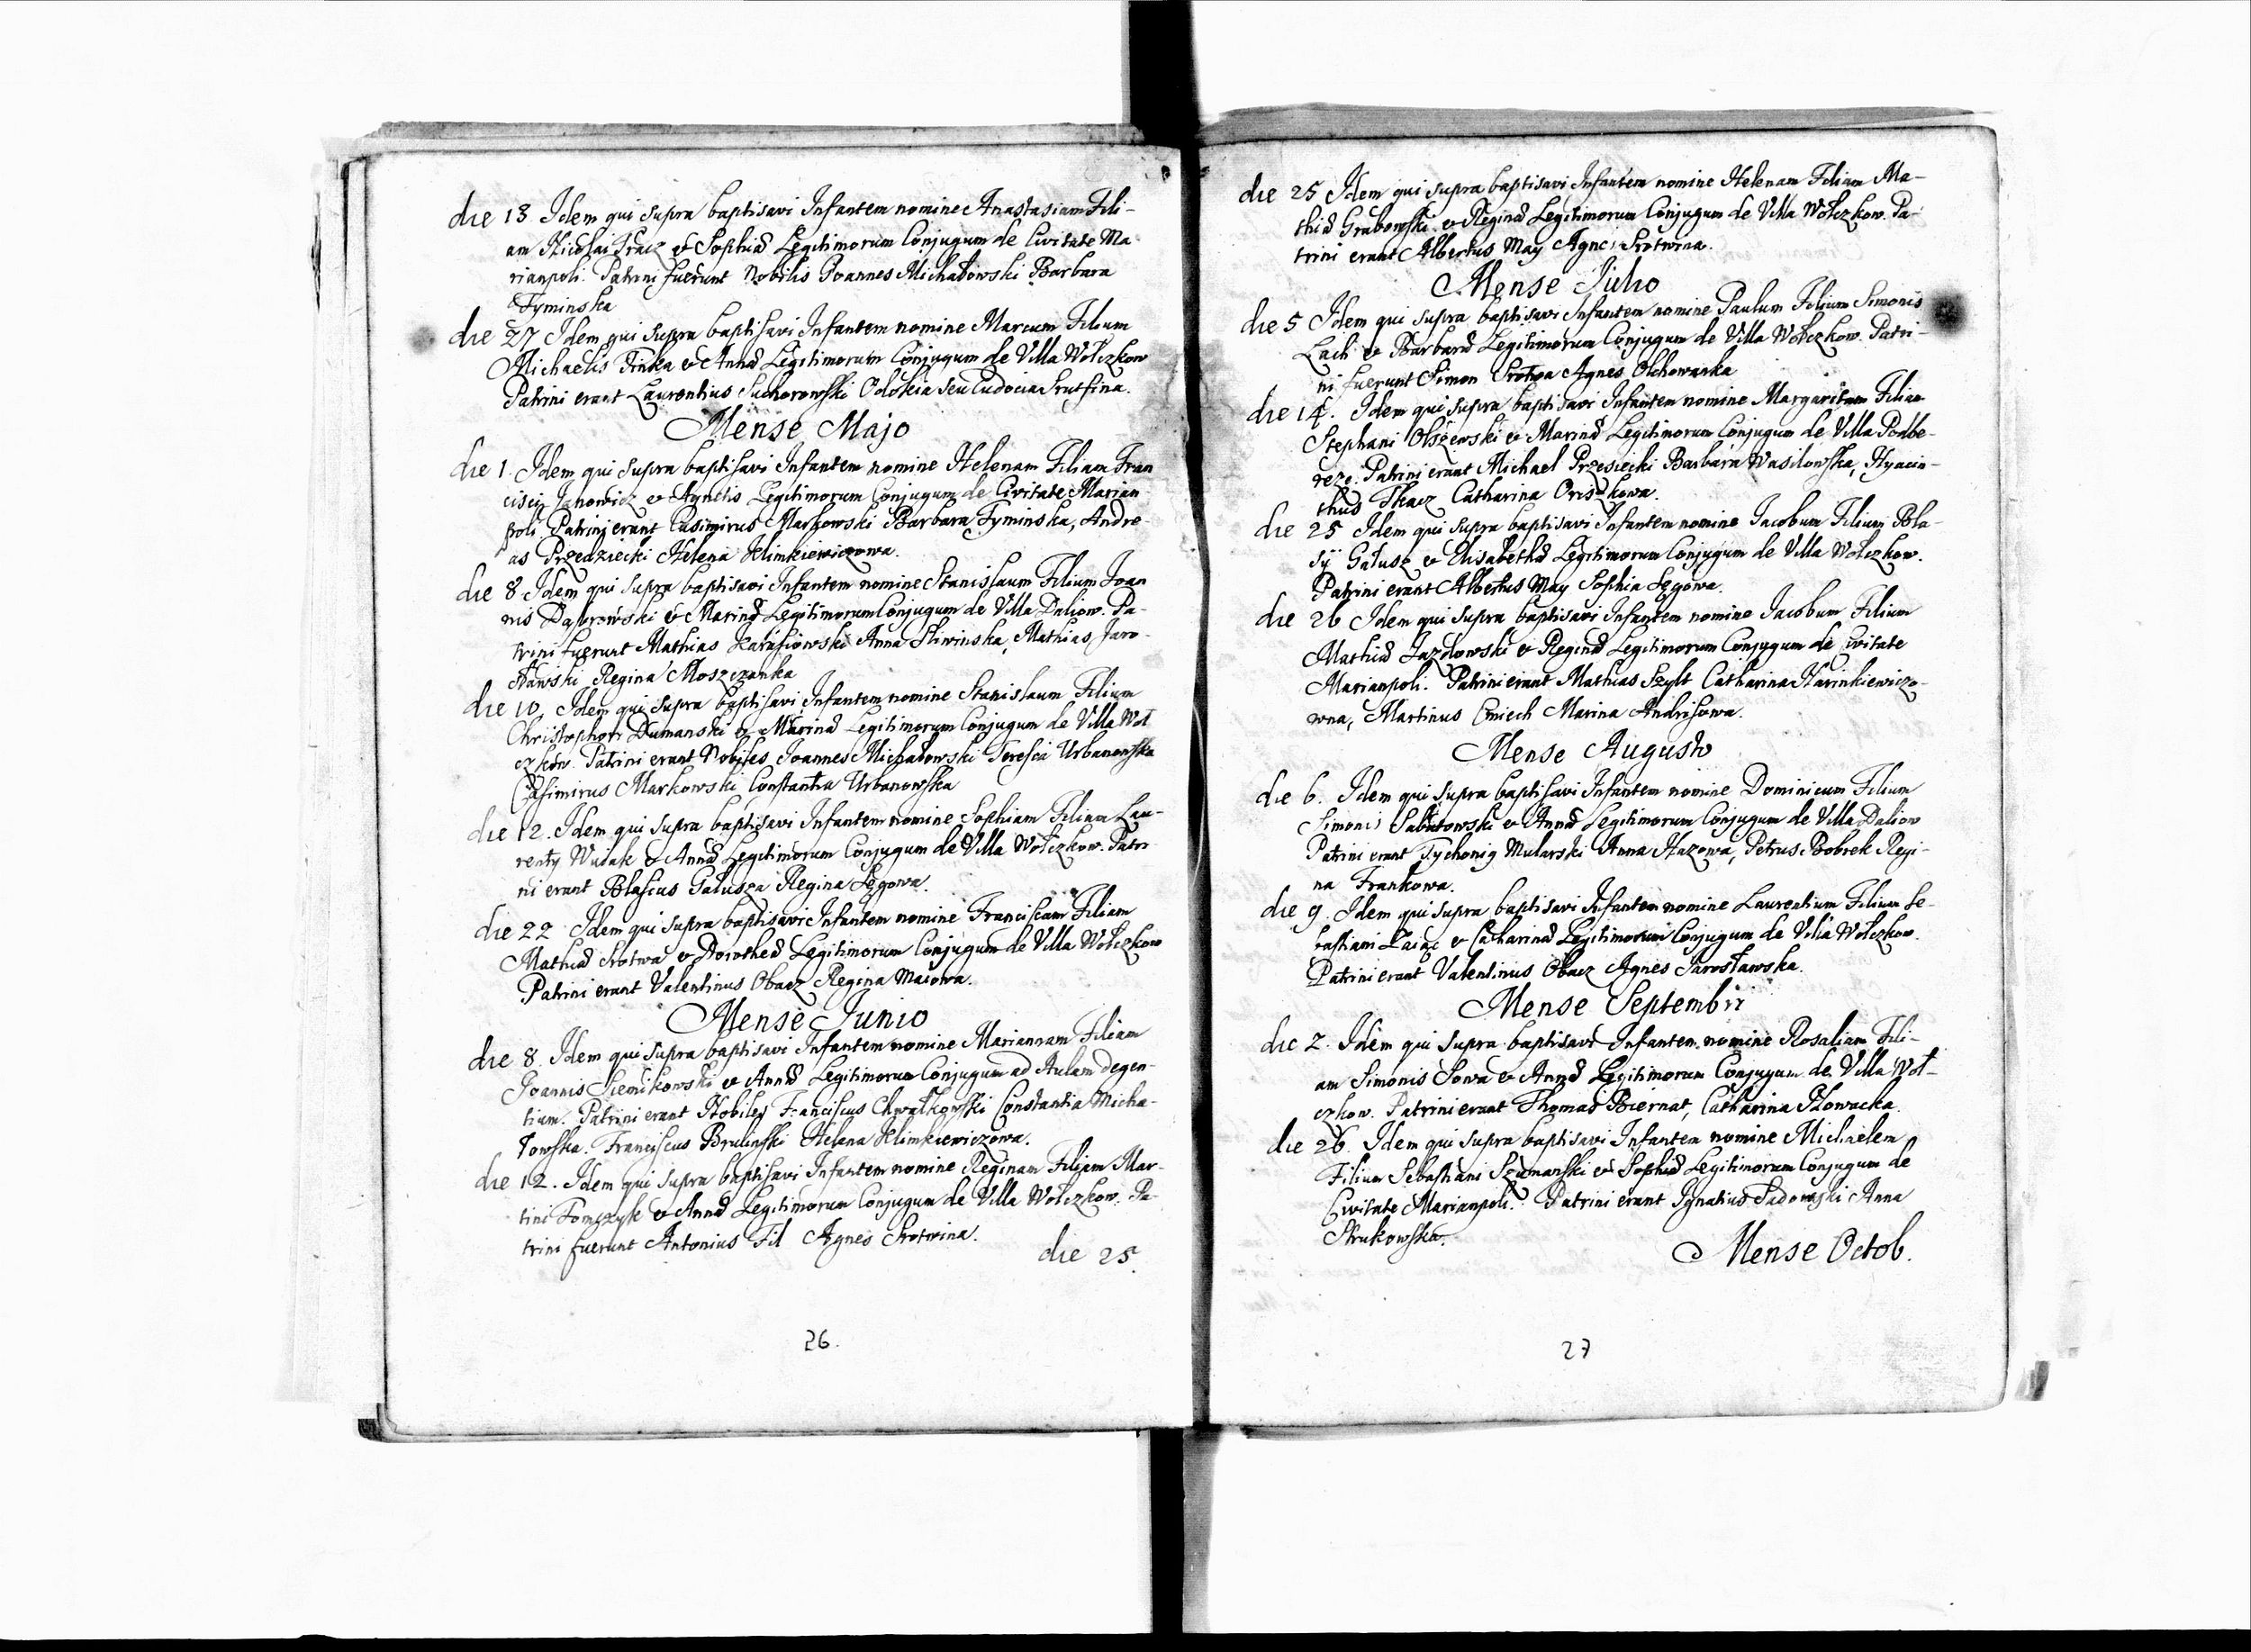 die 18 Idem qui supra baptisavi Infantem nomine Anastasiam Fili-
am Nicolai & Sophiæ Legitimorum Conjugum de Civitate Ma-
rianpoli. Patrini fuerunt Nobilis Joannes Michałowski Barbara
Tyminska
die 27 Idem qui supra baptisavi Infantem nomine Marcum Filium
Michaelis Finka & Annæ Legitimorum Conjugum de Villa Wołczkow
Patrini erant Laurentius Suchorowski seu Eudocia
Mense Majo
die 1. Idem qui supra baptisavi Infantem nomine Helenam Filiam Fran
cisci Janowicz & Agnetis Legitimorum Conjugum de Civitate Marian
poli Patrini erant Casimirus Markowski Barbara Tyminska, Andre-
as Przedziecki Helena Klimkiewiczowa.
die 8 Idem qui supra baptisavi Infantem nomine Stanislaum Filium Joan
nis Dąbrowski & Marinæ Legitimorum Conjugum de Villa Daliow. Pa-
trini fuerunt Mathias Anna Sliwinska, Mathias Jaro-
sławski Regina Moszczanka
die 10. Idem qui supra baptisavi Infantem nomine Stanislaum Filium
Christophori Dumanski & Marinæ Legitimorum Conjugum de Villa Woł
czkow. Patrini erant Nobiles Joannes Michałowski Teresia Urbanowska
Casimirus Markowski Constantia Urbanowska
die 12. Idem qui supra baptisavi Infantem nomine Sophiam Filiam Lau-
renty Wuiak & Annæ Legitimorum Conjugum de Villa Wołczkow. Patri
ni erant Blasius Galusza Regina Sęgowa.
die 22 Idem qui supra baptisavi Infantem nomine Franciscam Filiam
Mathiæ Srotwa & Dorotheæ Legitimorum Conjugum de Villa Wołczkow
Patrini erant Valentinus Obacz Regina Maiowa.
Mense Junio
die 8. Idem qui supra baptisavi Infantem nomine Mariannam Filiam
Joannis Siemikowski & Annæ Legitimorum Conjugum ad Aulam degen-
tium. Patrini erant Nobiles Franciscus Chwałkowski Constantia Micha-
łowska. Franciscus Brulinski Helena Klimkiewiczowa.
die 12. Idem qui supra baptisavi Infantem nomine Reginam Filiam Mar-
tini Tomczyk & Annæ Legitimorum Conjugum de Villa Wołczkow. Pa-
trini fuerunt Antonius Fil Agnes Srotwina.
die 25.
26.
die 25 Idem qui supra baptisavi Infantem nomine Helenam Filiam Ma-
thiæ Grabowski & Reginæ Legitimorum Conjugum de Villa Wołczkow. Pa-
trini erant Albertus May Agnes Srotwina.
Mense Julio
die 5 Idem qui supra baptisavi Infantem nomine Paulum Filium Simonis
Lach & Barbaræ Legitimorum Conjugum de Villa Wołczkow. Patri-
ni fuerunt Simon Srotwa Agnes Olchowanka
die 14. Idem qui supra baptisavi Infantem nomine Margaritam Filiam
Stephani Olszewski & Marinæ Legitimorum Conjugum de Villa Podbe-
reze. Patrini erant Michael Przesiecki Barbara Wasilowska, Hyacin-
thus Tkacz Catharina Oriszkowa.
die 25 Idem qui supra baptisavi Infantem nomine Jacobum Filium Bla-
sÿ Galusz & Elisabethæ Legitimorum Conjugum de Villa Wołczkow.
Patrini erant Albertus May Sophia Sęgowa.
die 26 Idem qui supra baptisavi Infantem nomine Jacobum Filium
Mathiæ Jazłowski & Reginæ Legitimorum Conjugum de Civitate
Marianpoli. Patrini erant Mathias Szylt Catharina Harinkiewiczo-
wna, Martinus Cmiech Marina Andrisowa.
Mense Augusto
die 6. Idem qui supra baptisavi Infantem nomine Dominicum Filium
Simonis Sabatowski & Annæ Legitimorum Conjugum de Villa Daliow
Patrini erant Mularski Anna Hazowa, Petrus Bobrek Regi-
na Frankowa.
die 9. Idem qui supra baptisavi Infantem nomine Laurentium Filium Se-
bastiani Zaiąc & Catharinæ Legitimorum Conjugum de Villa Wołczkow.
Patrini erant Valentinus Obacz Agnes Jarosławska.
Mense Septembri
die 2. Idem qui supra baptisavi Infantem nomine Rosaliam Fili-
am Simonis Sowa & Annæ Legitimorum Conjugum de Villa Woł-
czkow. Patrini erant Thomas Biernat, Catharina Słowacka.
die 26. Idem qui supra baptisavi Infantem nomine Michaelem
Filium Sebastiani Szumanski & Sophiæ Legitimorum Conjugum de
Civitate Marianpoli. Patrini erant Ignatius Sadowski Anna
Strukowska.
Mense Octob.
27